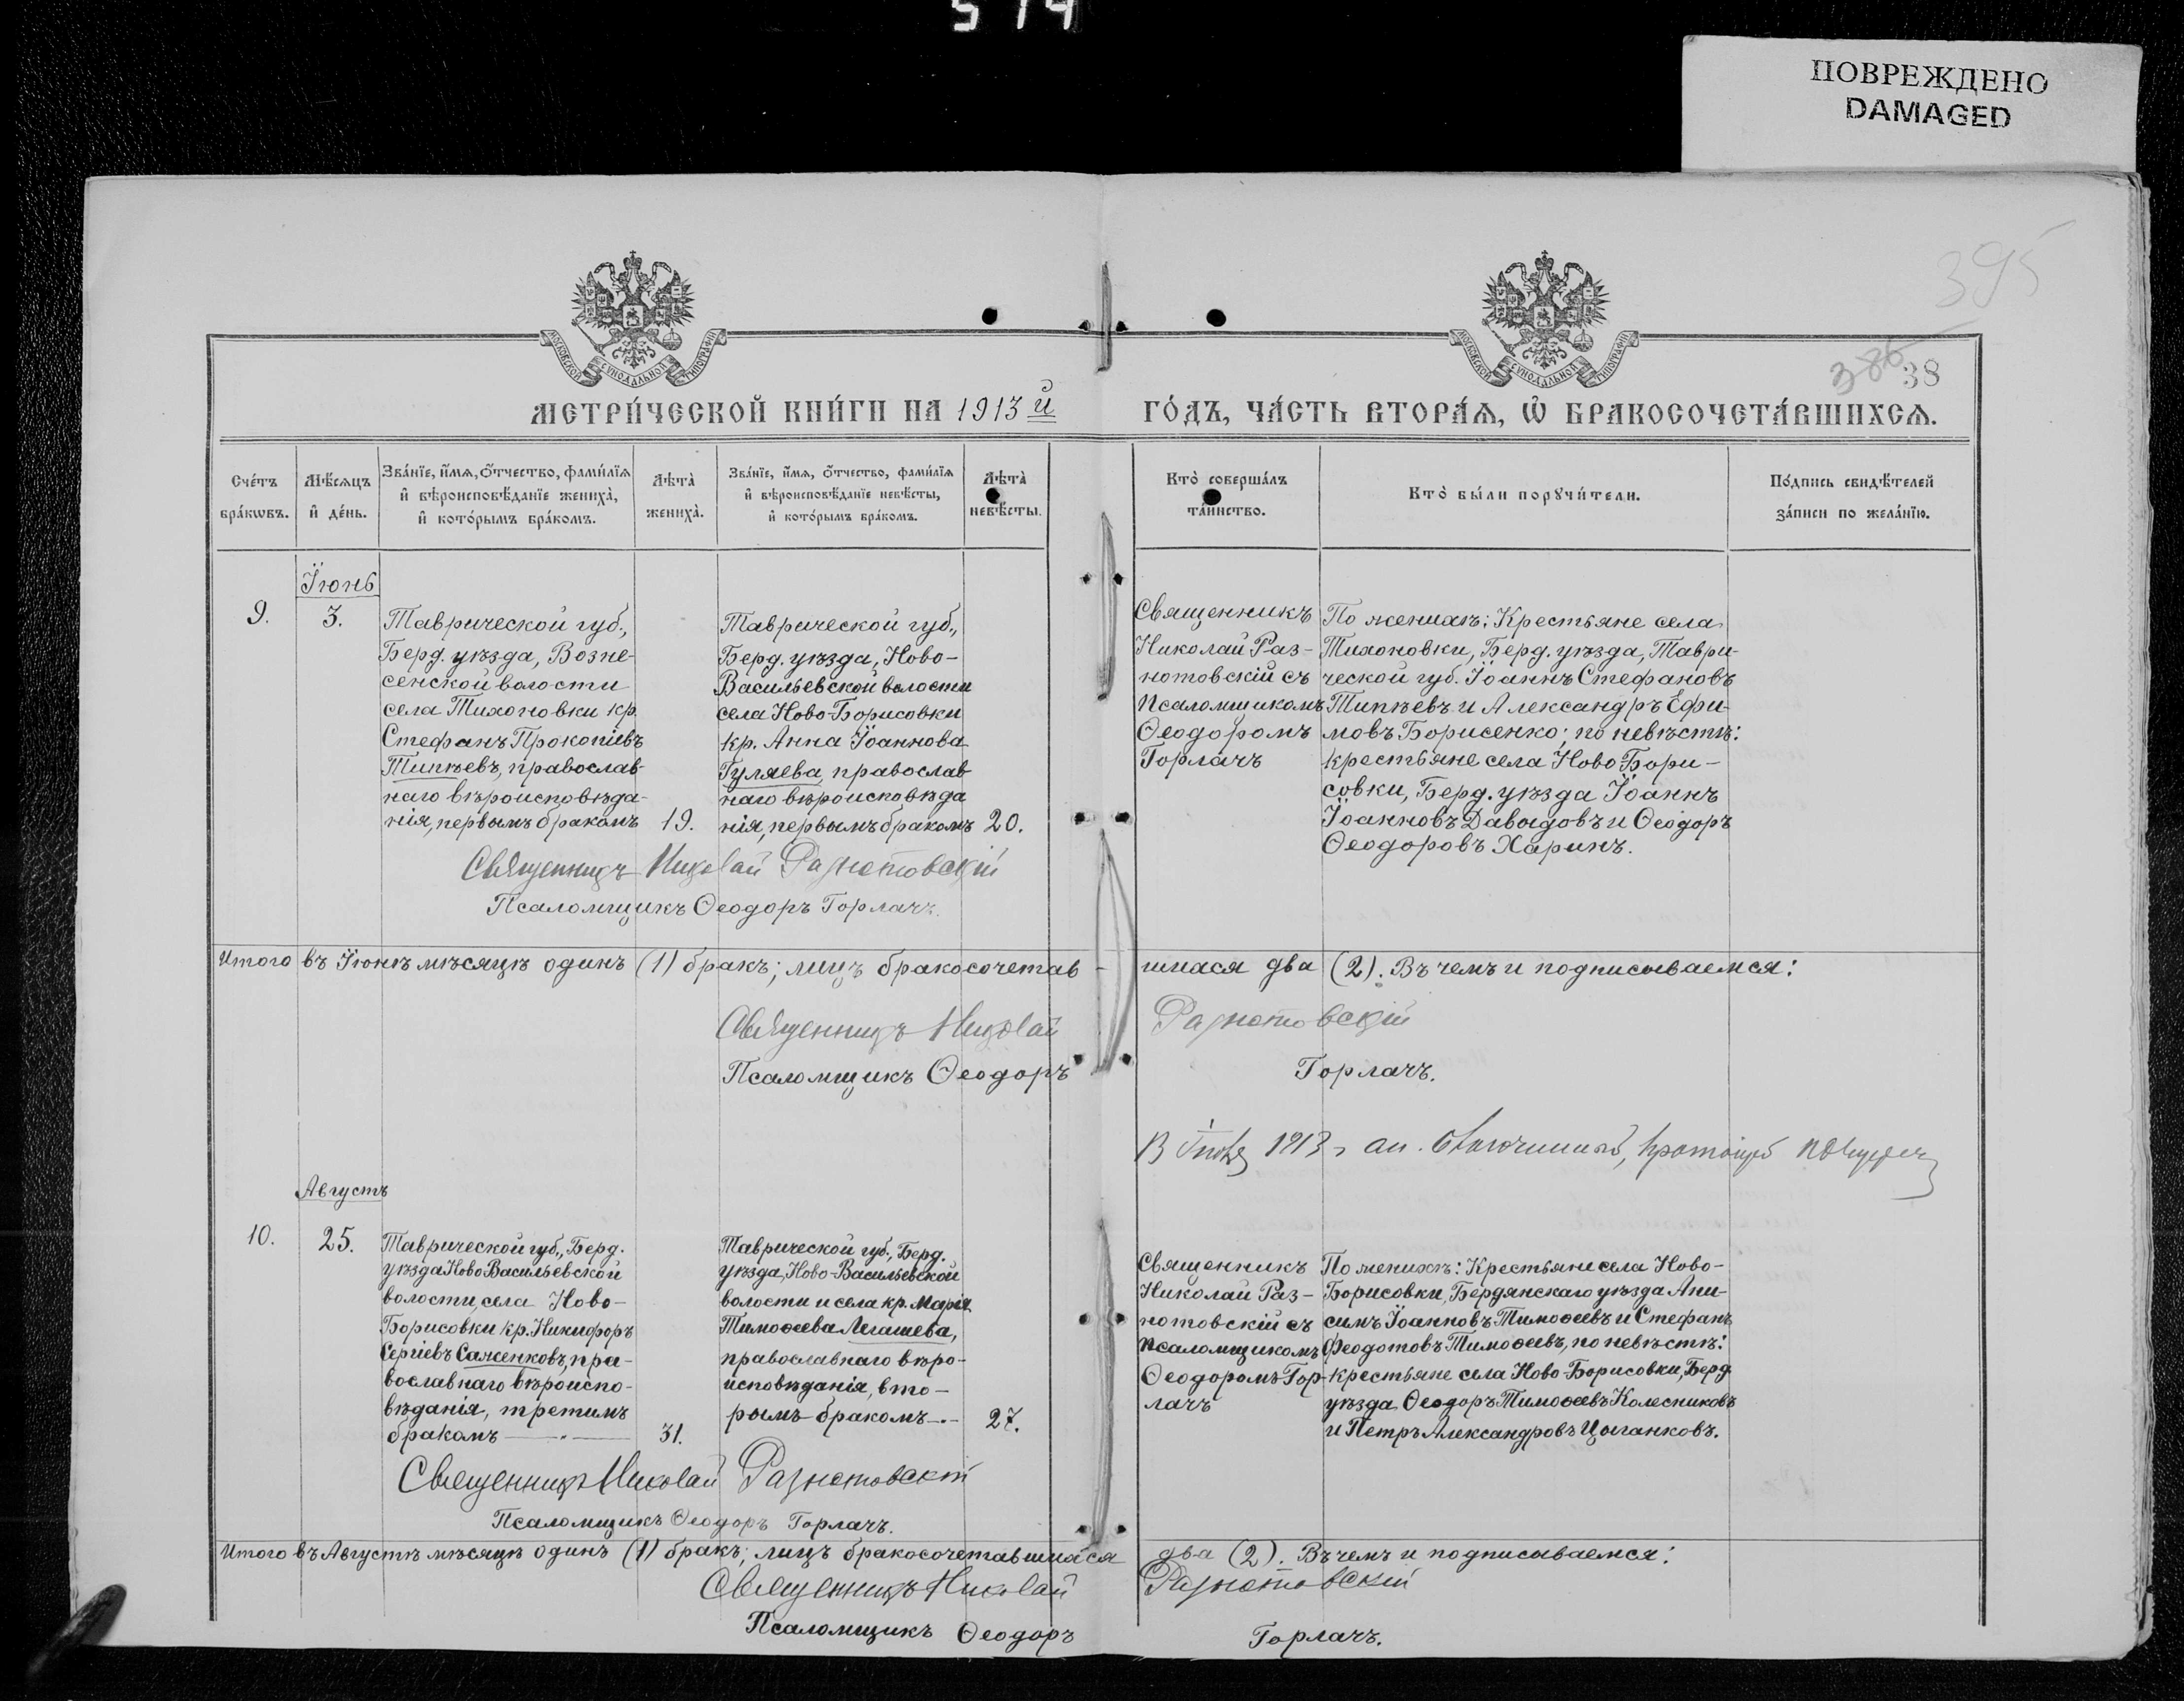 514
ПОВРЕЖДЕНО
DAMAGED
395
386
38
МОСКОВСКОЙ СѴНОДАЛЬНОЙ ТИПОГРАФІИ
МОСКОВСКОЙ СѴНОДАЛЬНОЙ ТИПОГРАФІИ
МЕТРИ́ЧЕСКОЙ КНИ́ГИ НА 1913й
ГО́ДЪ, ЧА́СТЬ ВТОРА́Я, Ѽ БРАКОСОЧЕТА́ВШИХСѦ.
Сче́тъ
бра́кѡвъ.
Мѣ́сѧцъ
и҆ де́нь.
Зва́нїе, и҆́мѧ, ѻ҆́тчество, фами́лїѧ
и҆ вѣроисповѣ́данїе жениха̀,
и҆ кото́рымъ бра́комъ.
Лѣ́та̀
жениха̀.
Зва́нїе, и҆́мѧ, ѻ҆́тчество, фами́лїѧ
и҆ вѣроисповѣ́данїе невѣ́сты,
и҆ кото́рымъ бра́комъ.
Лѣ́та̀
невѣ́сты.
Кто̀ соверша́лъ
та́инство.
Кто̀ бы́ли порꙋчи́тели.
По́дпись свидѣ́телей
за́писи по жела́нїю.
Їюнь
9.
3.
Таврической губ.,
Берд. уѣзда, Возне-
сенской волости
села Тихоновки кр.
Стефанъ Прокопіевъ
Типѣевъ, православ-
наго вѣроисповѣда-
нія, первымъ бракомъ
19.
Таврической губ.,
Берд. уѣзда, Ново-
Васильевской волости
села Ново-Борисовки
кр. Анна Їоаннова
Гуляева, православ-
наго вѣроисповѣда
нія, первымъ бракомъ
20.
Священникъ
Николай Раз-
нотовскій съ
псаломщикомъ
Ѳеодоромъ
Горлачъ
По женихѣ: Крестьяне села
Тихоновки, Берд. уѣзда, Таври-
ческой губ. Їоаннъ Стефановъ
Типѣевъ и Александръ Ефи-
мовъ Борисенко; по невѣстѣ:
крестьяне села Ново Бори-
совки, Берд. уѣзда Їоаннъ
Їоанновъ Давыдовъ и Ѳеодоръ
Ѳеодоровъ Харинъ.
Священникъ Николай Разнотовскій
Псаломщикъ Ѳеодоръ Горлачъ.
Итого въ Їюнѣ мѣсяцѣ одинъ (1) бракъ; лицъ бракосочетав-
шихся два (2). Въ чемъ и подписываемся:
Священникъ Николай Разнотовскій
Псаломщикъ Ѳеодоръ Горлачъ.
1913
Августъ
10.
25.
Таврической губ., Берд.
уѣзда Ново Васильевской
волости, села Ново-
Борисовки кр. Никифоръ
Сергіевъ Саженковъ, пра-
вославнаго вѣроиспо-
вѣданія, третимъ
бракомъ
31.
Таврической губ., Берд.
уѣзда, Ново-Васильевской
волости и села кр. Марія
Тимоѳеева Легашева,
православнаго вѣро-
исповѣданія, вто-
рымъ бракомъ
27.
Священникъ
Николай Раз-
нотовскій съ
псаломщикомъ
Ѳеодоромъ Гор-
лачъ
По женихѣ: Крестьяне села Ново-
Борисовки, Бердянскаго уѣзда Ани-
симъ Їоанновъ Тимоѳеевъ и Стефанъ
Феодотовъ Тимоѳеевъ, по невѣстѣ:
крестьяне села Ново-Борисовки, Берд.
уѣзда Ѳеодоръ Тимоѳеевъ Колесниковъ
и Петръ Александровъ Цыганковъ.
Священникъ Николай Разнотовскій
Псаломщикъ Ѳеодоръ Горлачъ.
Итого въ Августѣ мѣсяцѣ одинъ (1) бракъ; лицъ бракосочетавшихся
два (2). Въ чемъ и подписываемся:
Священникъ Николай Разнотовскій
Псаломщикъ Ѳеодоръ Горлачъ.